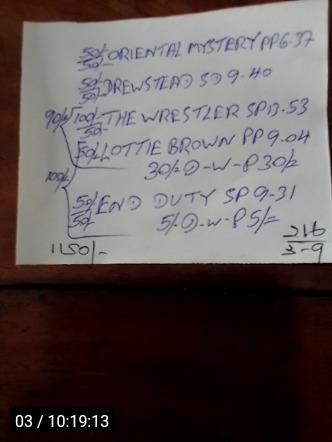 50/- 50/- ORIENTAL MYSTERY PP 6-37
50/- 50/- DREWSTEAD SD 9.40
90/- 100/- 50/- THE WRESTLER SP 13.53
50/- LOTTIE BROWN PP 9.04
30/- D-W-P 30/-
100/-
50/- 50/- END DUTY SP 9-31
5/- D-W-P 5/-
1150/-
216
3-9
03 / 10:19:13